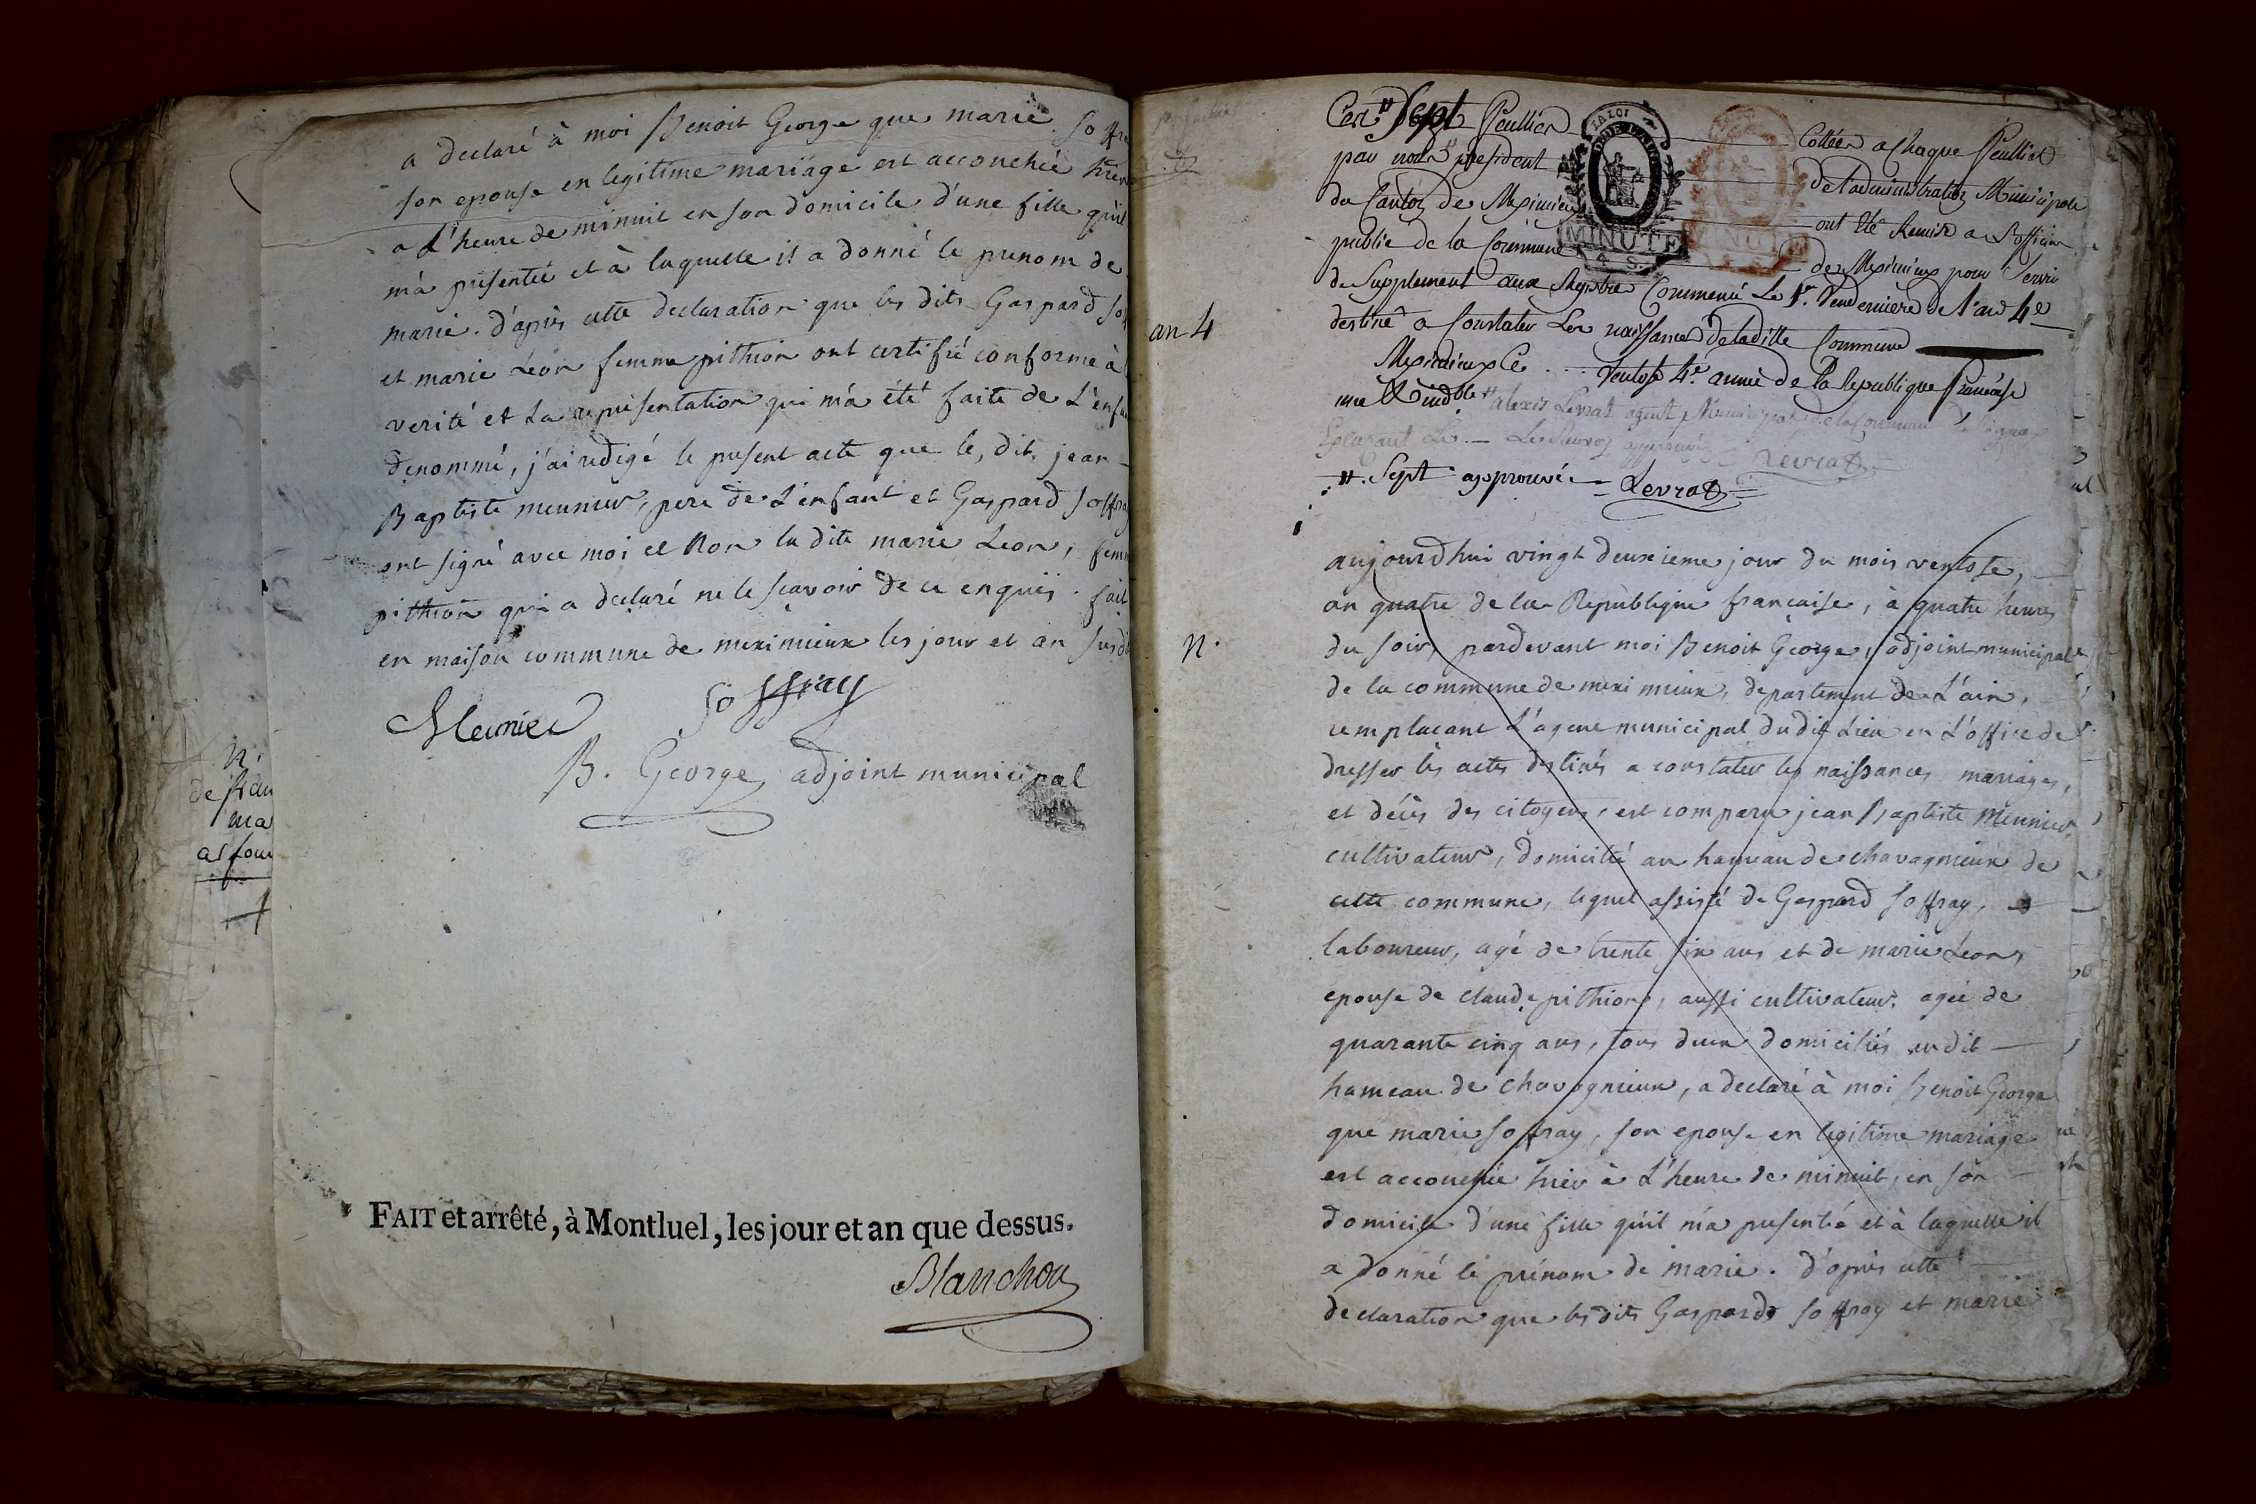 a declaré à moi Benoit George que marie Soffra
son epouse en legitime mariage est accouchée hier
a L'heure de minuit en son domicile d'une fille qu'il
m'a présentée et à laquelle il a donné le prenom de
marie. d'après cette declaration que les dits Gaspard So
et marie Léon femme pithion ont certifié conforme à
verité et la représentation qui m'a été faite de L'enfa
denommé, j'ai redigé le present acte que le, dit, jean
Baptiste meunier, pere de L'enfant et Gaspard Soffray
ont signé avec moi et Non la dite marie Leon, femm
pithion qui a declaré ne le scavoir de ce enquis. fait
en maison commune de meximieux les jour et an susdi
Meunier
Soffray
B. George adjoint municipal
n.
ma
FAIT et arrêté, à Montluel, les jour et an que dessus.
Blanchon
Ces Sept feuilles
Cottées a Chaque feuillet
par nous président
de l'administration Municipale
du Canton de Meximieux
ont été Remise a L'officier
publie de la Commune
de Meximieux pour Servir
de Supplement aux Registre Commencé Le 1er. Vendemiere de l'an 4e
destiné a Constater Les naissances de ladite Commune
Meximieux Ce ... Ventose 4e. année de la Republique française
une & indble. alexis Levrat agent Municipal de la Commune de
Levrat
Sept approuvé Levrat
LA LOI
MINUTE
4 S.
MINUTE
an 4
1
n.
aujourdhui vingt deuxieme jour du mois ventose,
an quatre de la Republique française, à quatre heures
du soir, pardevant moi Benoit George, adjoint municipal
de la commune de meximieux, departement de L'ain,
remplacant L'agent municipal dudit Lieu en L'office de
dresser les actes destinés a constater les naissances mariages,
et décès des citoyens, est comparu jean Baptiste Meunier,
cultivateur, domicilié au hameau de chavagnieux de
cette commune, lequel assisté de Gaspard Soffray,
laboureur, agé de trente six ans et de marie Léon,
epouse de claude pithion, aussi cultivateur, agée de
quarante cinq ans, tous deux domiciliés audit
hameau de chavagnieux, a declaré à moi Benoit George
que marie Soffray, son epouse en legitime mariage
est accouchée hier à L'heure de minuit, en son
domicile d'une fille qu'il m'a presentée et à laquelle il
a donné le prénom de marie. d'après cette
declaration que les dits Gaspard Soffray et marie